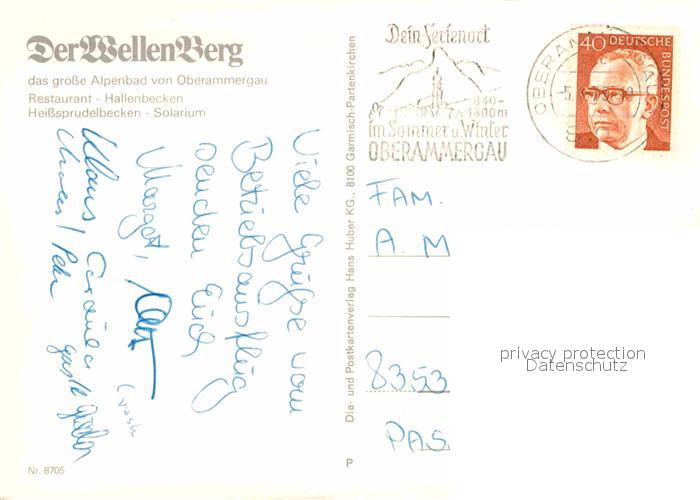 Der Wellen Berg
das große Alpenbad von Oberammergau
Restaurant - Hallenbecken
Heißsprudelbecken - Solarium
Viele Grüße vom
Betriebsausflug
senden Euch
Margot,
Klaus
Nr. 8705
Dia- und Postkartenverlag Hans Huber KG., 8100 Garmisch-Partenkirchen
P
Dein Ferienort
840-
1800m
im Sommer u. Winter
OBERAMMERGAU
OBERAMMERGAU
40 DEUTSCHE
BUNDESPOST
FAM.
A. M
8353
PAS.
privacy protection
Datenschutz